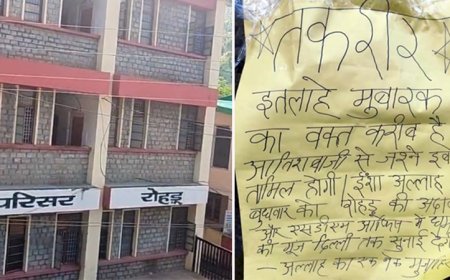 परिसर
रोहड़ू
तकरीर
इतलाहे मुबारक
का वक्त करीब है
आतिशबाजी से जश्ने
तामिल होगी। इंशा अल्लाह
बुधवार को रोहड़ू की
और एसडीएम ऑफिस में
की गूंज दिल्ली तक सुनाई
- अल्लाह का एक नेक